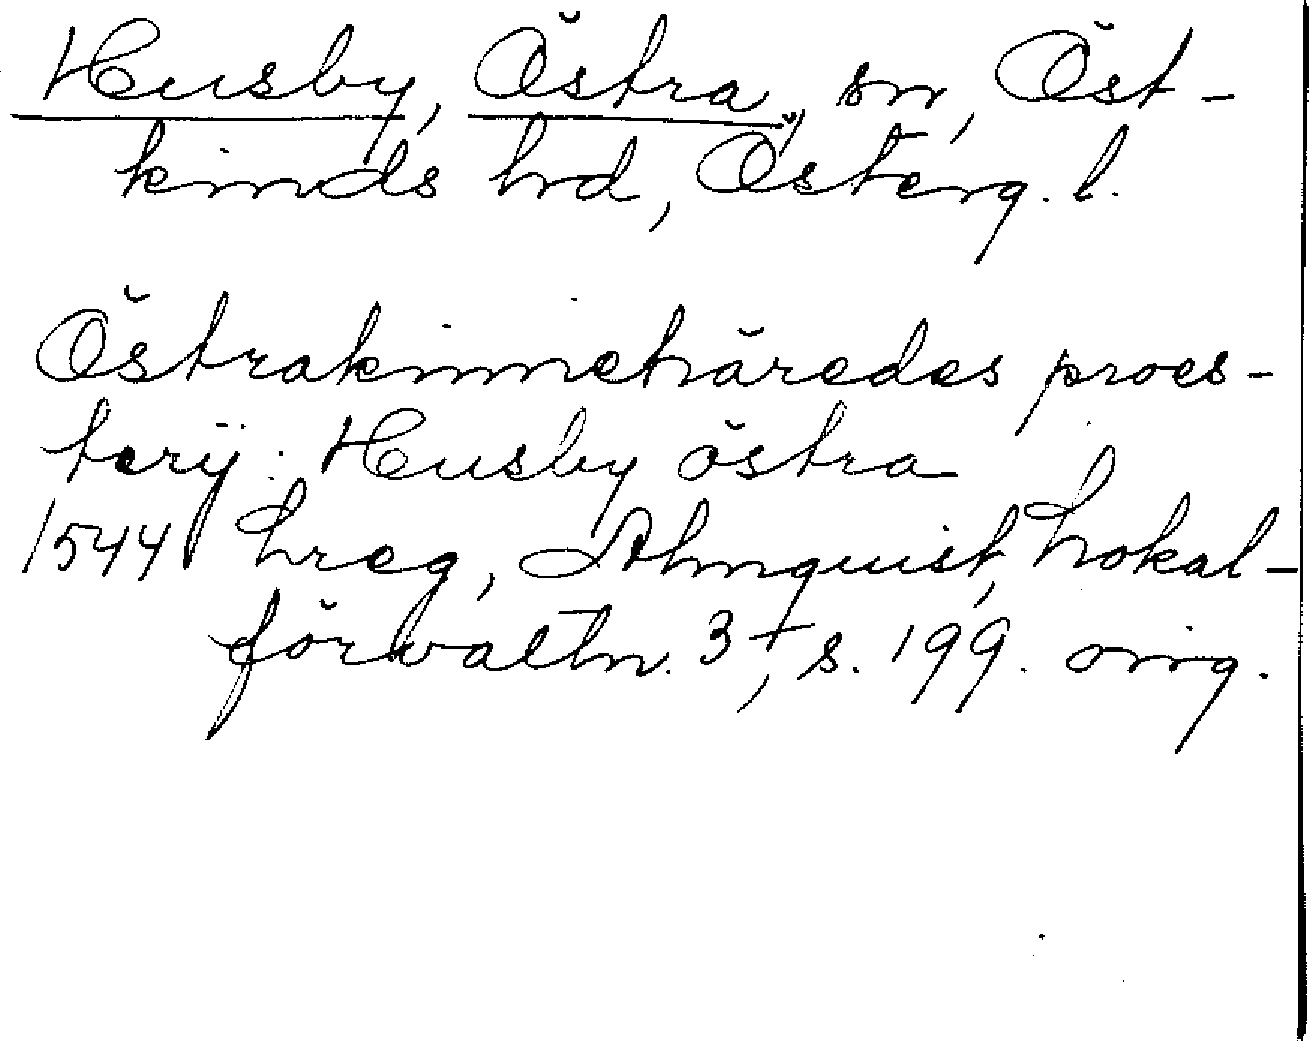 Husby, Östra, sn, Öst-
kinds hrd, Österg. l.
Östrakinnehäredes proes-
terij: Husby östra
1544 Lreg, Almquist, Lokal-
förvaltn. 3, s. 199. orig.